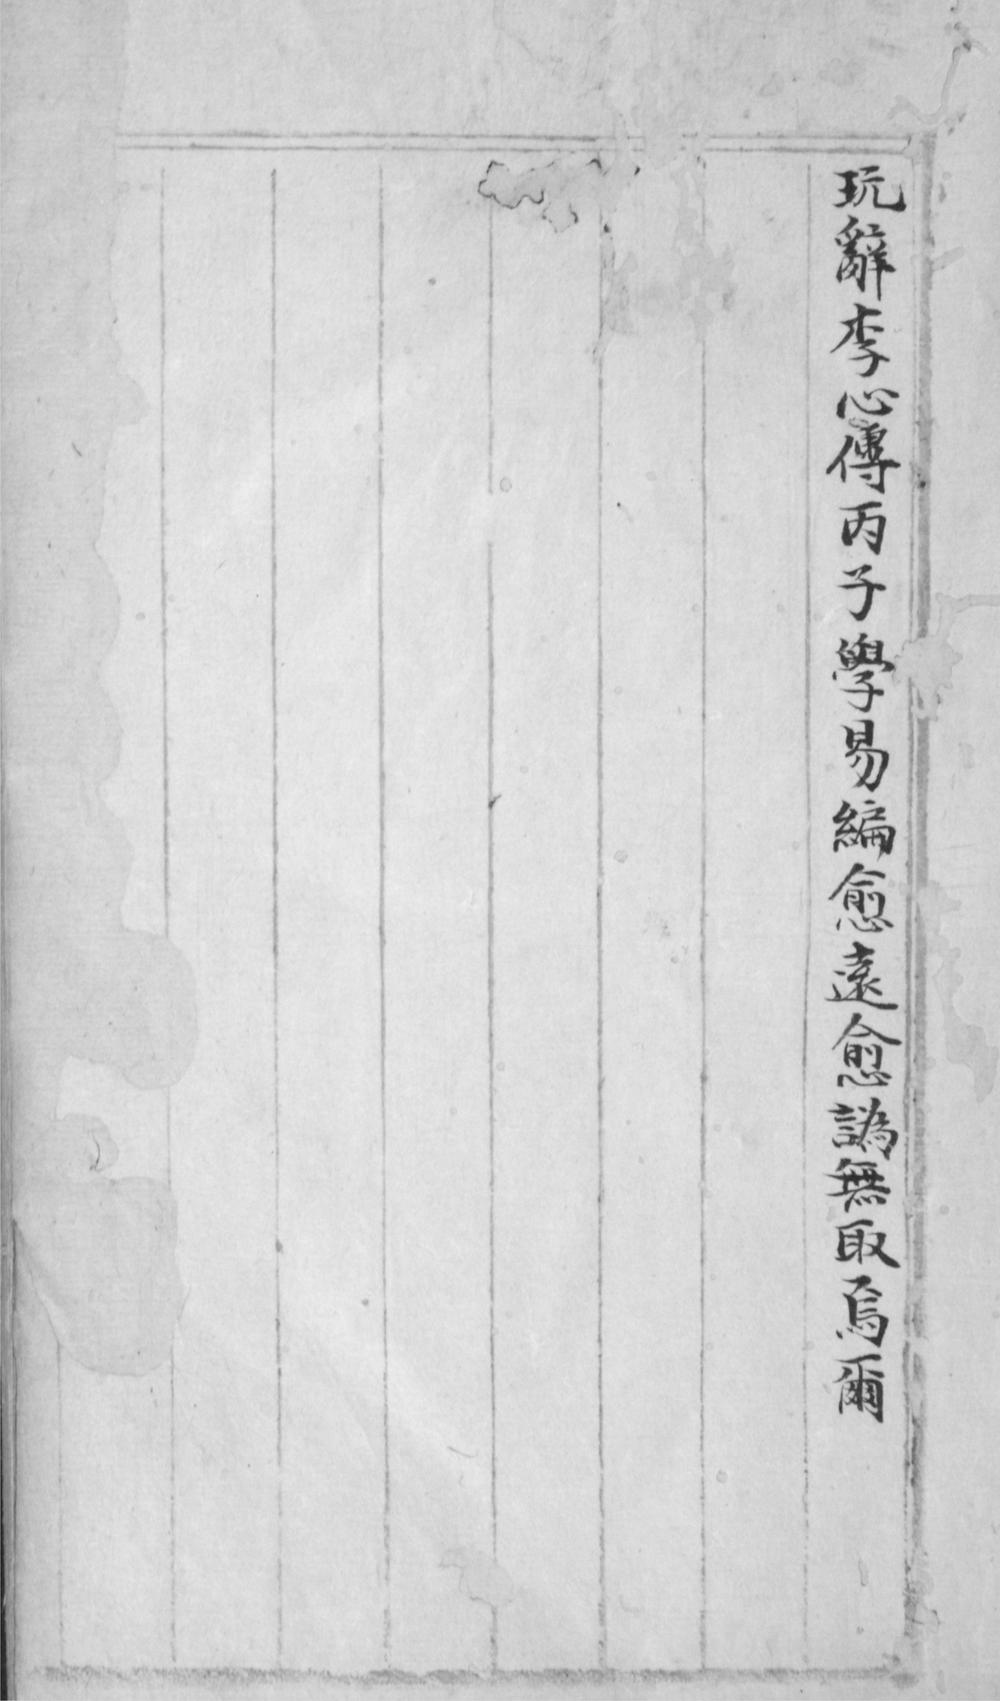 玩辭李心傳丙子學易編愈遠愈譌無取焉爾